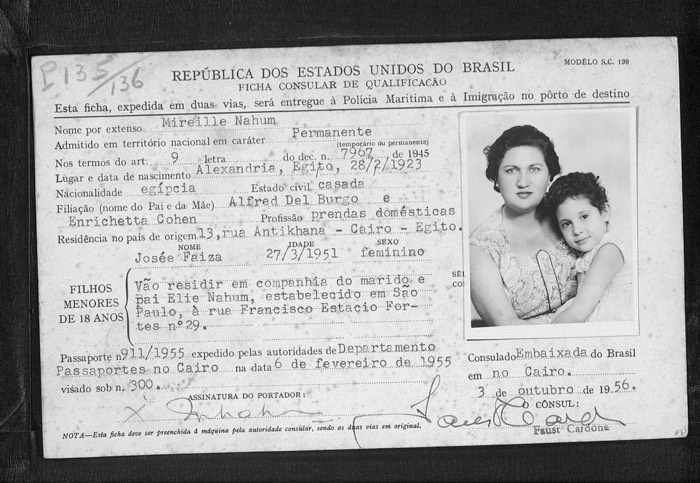 P 135/136
REPÚBLICA DOS ESTADOS UNIDOS DO BRASIL
MODÊLO S.C. 139
FICHA CONSULAR DE QUALIFICAÇÃO
Esta ficha, expedida em duas vias, será entregue à Polícia Marítima e à Imigração no pôrto de destino
Nome por extenso Mireille Nahum
Admitido em território nacional em caráter Permanente
(temporário ou permanente)
Nos termos do art. 9 letra do dec. n. 7967, de 1945
Lugar e data de nascimento Alexandria, Egito, 28/2/1923
Nacionalidade egípcia Estado civil casada
Filiação (nome do Pai e da Mãe) Alfred Del Burgo e
Enrichetta Cohen Profissão prendas domésticas
Residência no país de origem 13, rua Antikhana - Cairo - Egito.
NOME IDADE SEXO
Josée Faiza 27/3/1951 feminino
FILHOS
MENORES
DE 18 ANOS
Vão residir em companhia do marido e
pai Elie Nahum, estabelecido em São
Paulo, à rua Francisco Estacio For-
tes nº 29.
Passaporte n. 911/1955 expedido pelas autoridades de Departamento
Passaportes no Cairo na data 6 de fevereiro de 1955
visado sob n. 300.
ASSINATURA DO PORTADOR:
Consulado Embaixada do Brasil
em no Cairo.
3 de outubro de 1956.
O CÔNSUL:
Faust Cardona
NOTA—Esta ficha deve ser preenchida à máquina pela autoridade consular, sendo as duas vias em original.